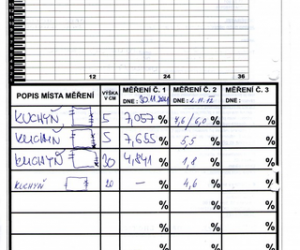 12 24 36
POPIS MÍSTA MĚŘENÍ VÝŠKA V CM MĚŘENÍ Č. 1 DNE: 30.11. MĚŘENÍ Č. 2 DNE: MĚŘENÍ Č. 3 DNE:
KUCHYŇ 5 7,057 % 4,6/6,0 % %
KUCHYŇ 5 7,655 % 5,5 % %
KUCHYŇ 20 4,841 % 1,8 % %
KUCHYŇ 20 — % 4,6 % %
% % %
% % %